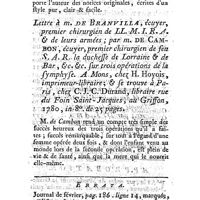 porte l'auteur des notices originales, écrites d'un
style pur, clair & facile.
Lettre à m. DE BRANVILLA, écuyer,
premier chirurgien de LL. M. I. R. A.
& de leurs armées; par m. DE CAM-
BON, écuyer, premier chirurgien de feu
S. A. R. la duchesse de Lorraine & de
Bar, &c. &c. sur trois opérations de la
symphyse. A Mons, chez H. Hoyois,
imprimeur-libraire; & se trouve à Pa-
ris, chez C. J. C. Durand, libraire rue
du Foin Saint-Jacques, au Griffon,
1780, in-8°. de 25 pages.
M. de Cambon rend un compte très simple des
succès heureux des trois opérations qu'il a fai-
tes; succès remarquable, sur-tout à l'égard d'une
femme opérée deux fois, & dont l'enfant venu au
monde lors de la seconde opération, est plein de
vie & de santé, ainsi que la mere qui le nourrit
elle-même.
ERRATA.
Journal de février, pag. 186. ligne 14, marqués,